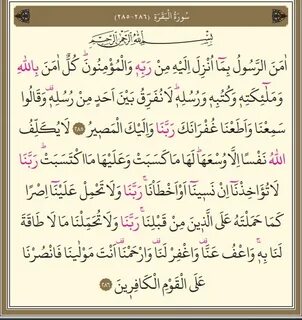 سُورَةُ الْبَقَرَةِ (٢٨٥-٢٨٦)
بِسْمِ اللّٰهِ الرَّحْمٰنِ الرَّحِيمِ
اٰمَنَ الرَّسُولُ بِمَٓا اُنْزِلَ اِلَيْهِ مِنْ رَبِّه۪ وَالْمُؤْمِنُونَۜ كُلٌّ اٰمَنَ بِاللّٰهِ
وَمَلٰٓئِكَتِه۪ وَكُتُبِه۪ وَرُسُلِه۪ۜ لَا نُفَرِّقُ بَيْنَ اَحَدٍ مِنْ رُسُلِه۪ۜ وَقَالُوا
سَمِعْنَا وَاَطَعْنَا غُفْرَانَكَ رَبَّنَا وَاِلَيْكَ الْمَص۪يرُ ٢٨٥ لَا يُكَلِّفُ
اللّٰهُ نَفْسًا اِلَّا وُسْعَهَاۜ لَهَا مَا كَسَبَتْ وَعَلَيْهَا مَا اكْتَسَبَتْۜ رَبَّنَا
لَا تُؤَاخِذْنَٓا اِنْ نَس۪ينَٓا اَوْ اَخْطَأْنَاۚ رَبَّنَا وَلَا تَحْمِلْ عَلَيْنَٓا اِصْرًا
كَمَا حَمَلْتَهُ عَلَى الَّذ۪ينَ مِنْ قَبْلِنَاۚ رَبَّنَا وَلَا تُحَمِّلْنَا مَا لَا طَاقَةَ
لَنَا بِه۪ۚ وَاعْفُ عَنَّا۠ وَاغْفِرْ لَنَا۠ وَارْحَمْنَا۠ اَنْتَ مَوْلٰينَا فَانْصُرْنَا
عَلَى الْقَوْمِ الْكَافِر۪ينَ ٢٨٦